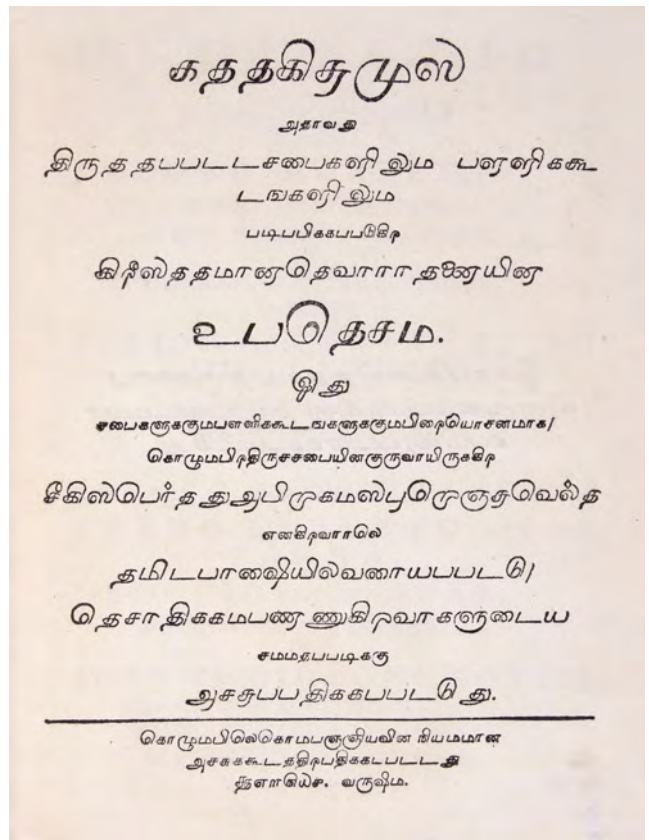 கததகிசமுஸ
அதாவது
திருததபபடடசபைகளிலும பளளிககூ
டஙகளிலும
படிபபிககபபடுகிற
கிரீஸததமானதெவாராதனையின
உபதெசம.
இது
சபைகளுககுமபளளிககூடஙகளுககுமபிறையொசனமாக/
கொழுமபிறதிருசசபையினகுருவாயிருககிற
சீகிஸபெர்தது
எனகிறவராலெ
தமிடபாஷையில
தெசாதிககமபணணுகிறவரகளுடைய
சமமதபபடிககு
அசசுபபதிககபபடடுது.
கொழுமபிலெகொமபஞஞியவின நியமமான
அசசுககூடததிறபதிககபபடடது
வருஷிம.